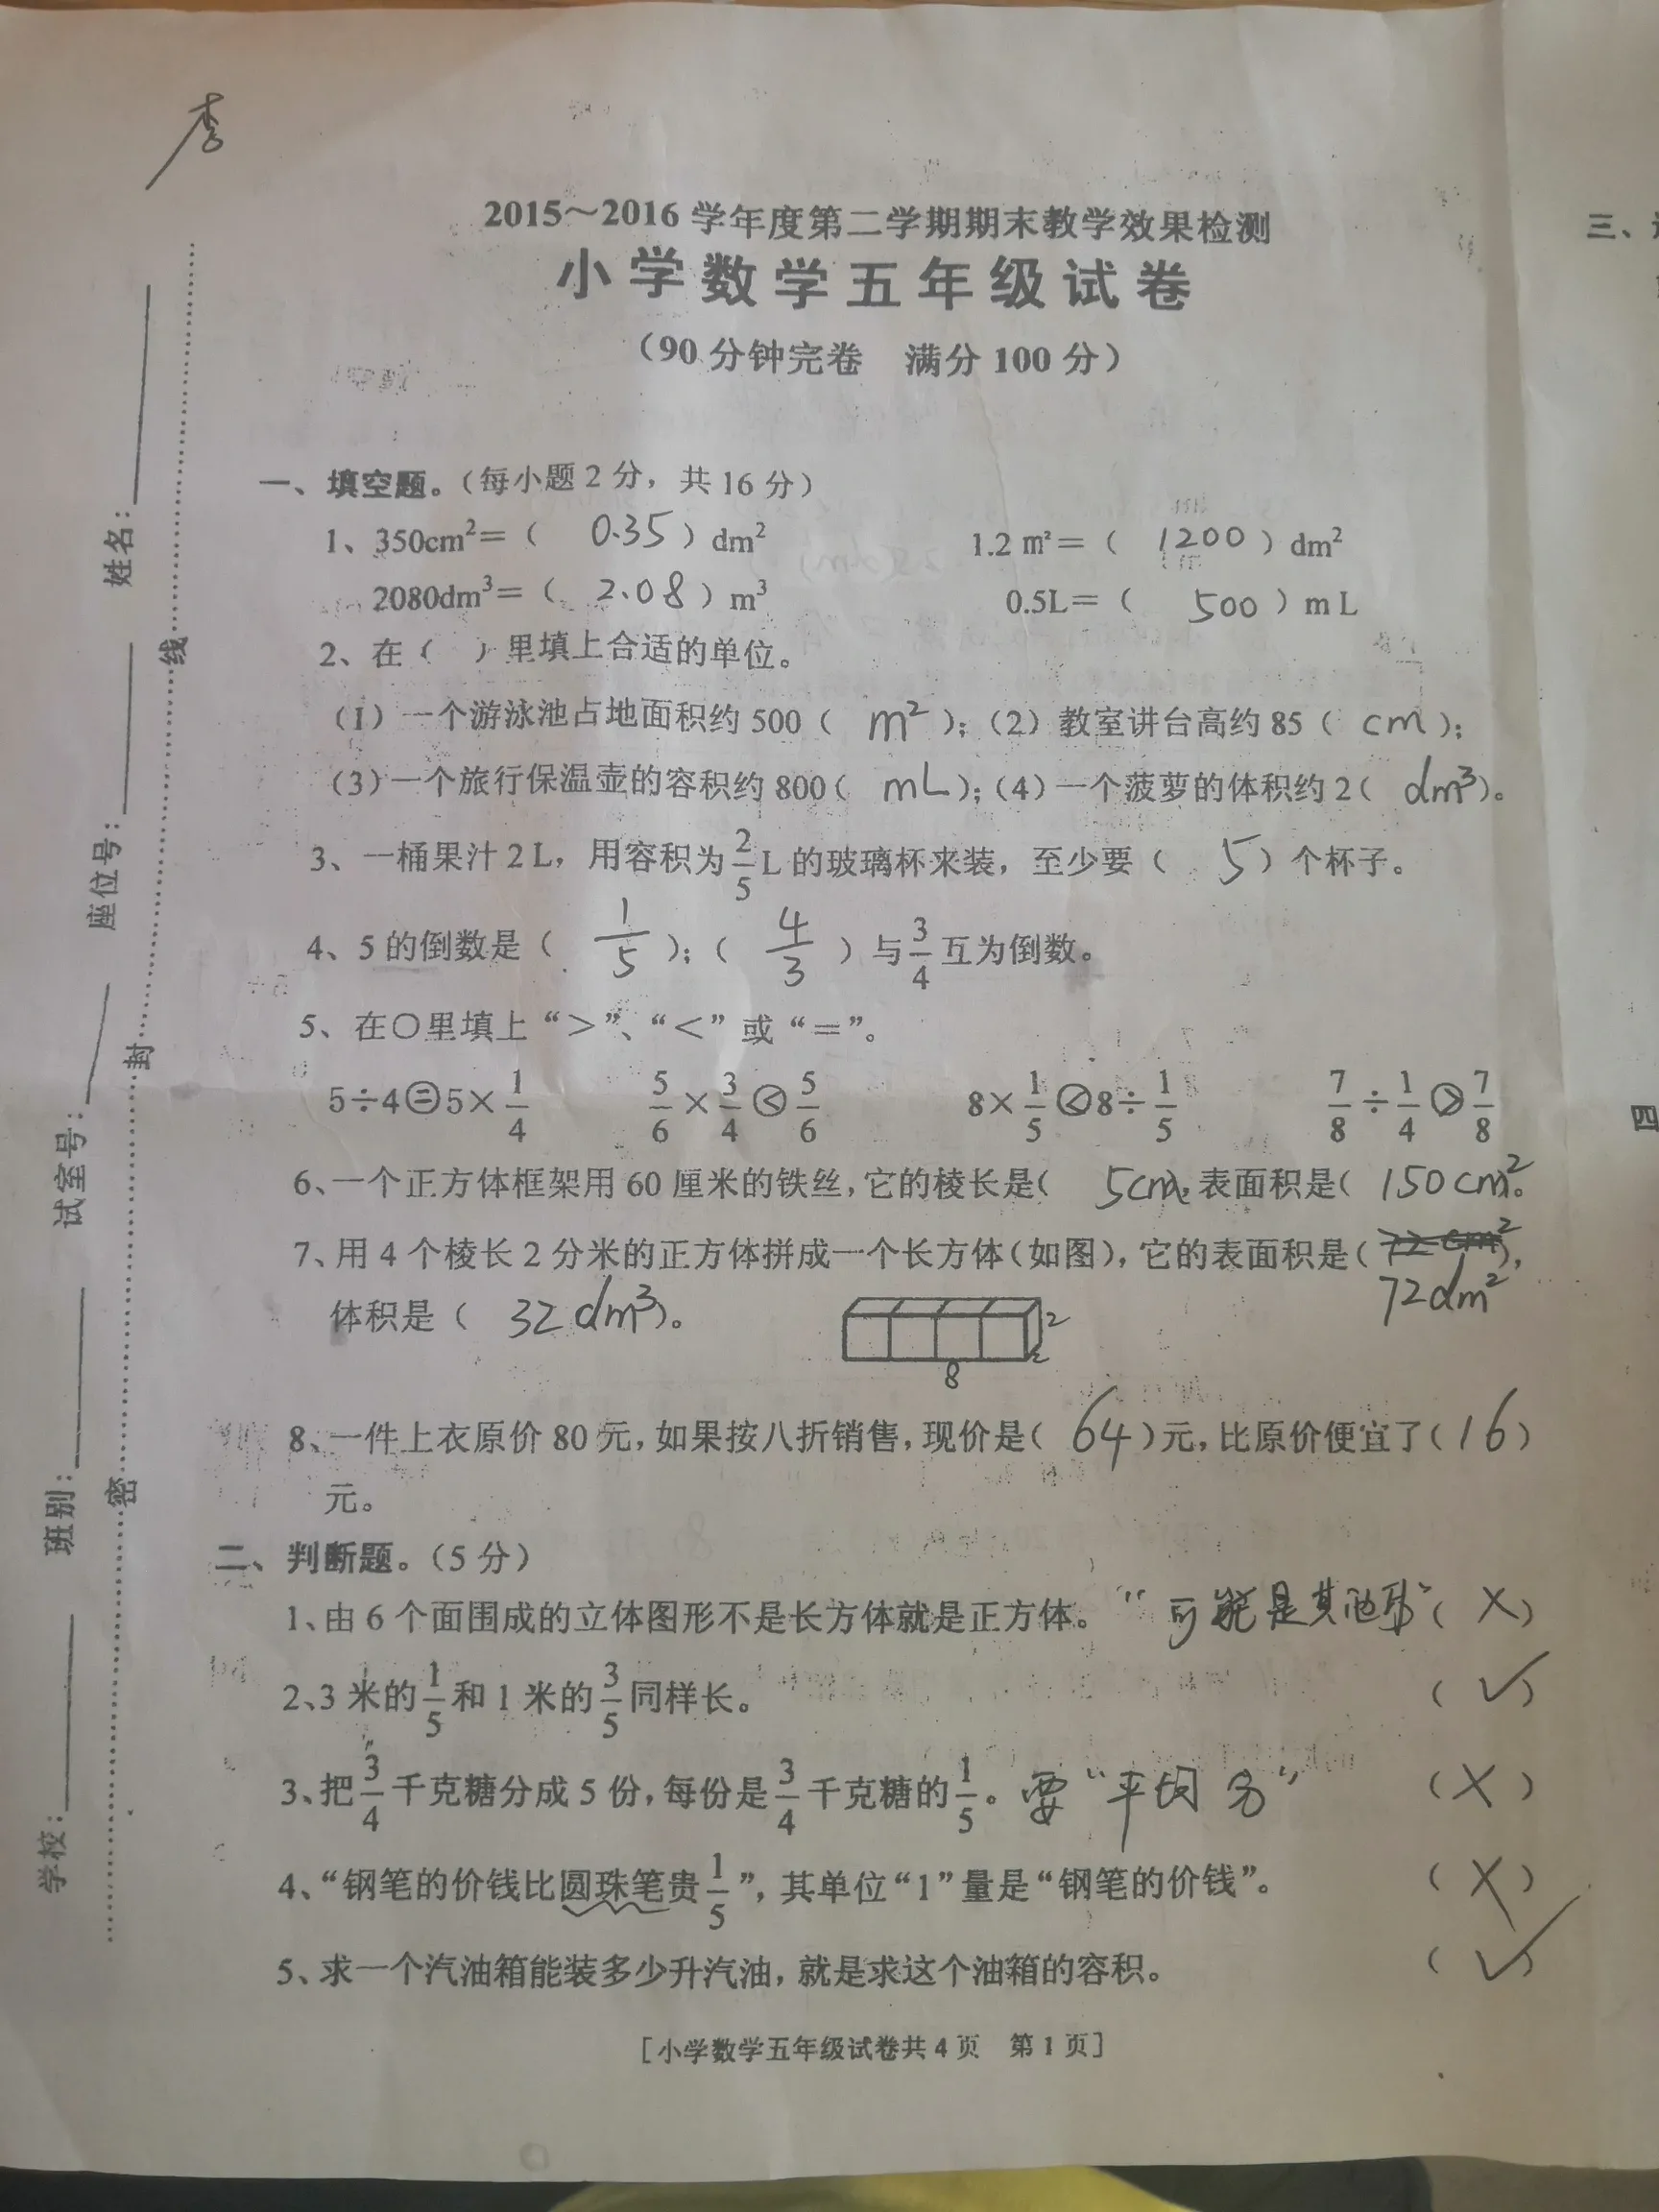 李
2015～2016学年度第二学期期末教学效果检测
小学数学五年级试卷
（90分钟完卷 满分100分）
一、填空题。（每小题2分，共16分）
1、350cm²＝（ 0.35 ）dm² 1.2㎡＝（ 1200 ）dm²
2080dm³＝（ 2.08 ）m³ 0.5L＝（ 500 ）mL
2、在（ ）里填上合适的单位。
（1）一个游泳池占地面积约500（ m² ）；（2）教室讲台高约85（ cm ）；
（3）一个旅行保温壶的容积约800（ mL ）；（4）一个菠萝的体积约2（ dm³ ）。
3、一桶果汁2L，用容积为2/5L的玻璃杯来装，至少要（ 5 ）个杯子。
4、5的倒数是（ 1/5 ）；（ 4/3 ）与3/4互为倒数。
5、在〇里填上“＞”、“＜”或“＝”。
5÷4＝5×1/4 5/6×3/4＜5/6 8×1/5＜8÷1/5 7/8÷1/4＞7/8
6、一个正方体框架用60厘米的铁丝，它的棱长是（ 5cm ），表面积是（ 150cm² ）。
7、用4个棱长2分米的正方体拼成一个长方体（如图），它的表面积是（ 72cm² ），
72dm²
体积是（ 32dm³ ）。
2
2
8
8、一件上衣原价80元，如果按八折销售，现价是（ 64 ）元，比原价便宜了（ 16 ）
元。
二、判断题。（5分）
1、由6个面围成的立体图形不是长方体就是正方体。“可能是其他形”（ × ）
2、3米的1/5和1米的3/5同样长。 （ ✓ ）
3、把3/4千克糖分成5份，每份是3/4千克糖的1/5。要“平均分” （ × ）
4、“钢笔的价钱比圆珠笔贵1/5”，其单位“1”量是“钢笔的价钱”。 （ × ）
5、求一个汽油箱能装多少升汽油，就是求这个油箱的容积。 （ ✓ ）
［小学数学五年级试卷共4页 第1页］
学校： 班别： 试室号： 座位号： 姓名：
密 封 线
三、
四